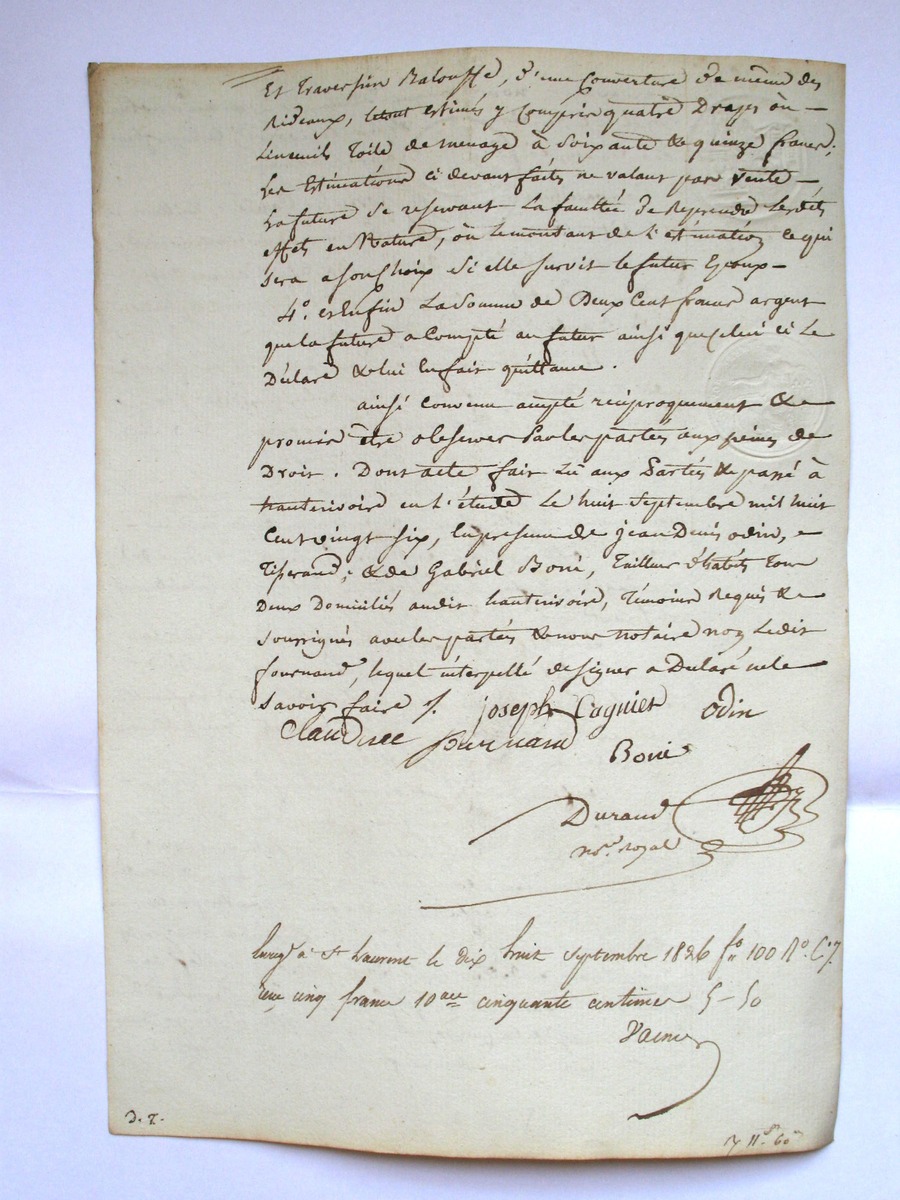 Et traversin Balouffe, d'une Couverture de même des
Rideaux, letout estimés y Compris quatre Draps ou
Linceuils Toile de menage à Soixante & quinze francs;
Les Estimations ci devant faites ne valant pas vente
La future Se reservant La faculté de Reprendre Lesdits
effets en Nature, ou lemontant de L'estimation ce qui
Sera asonChoix Si elle survit lefutur Epoux
4°. et Enfin La Somme de Deux Cent francs argent
que la future a Compté au futur ainsi que Celui ci Le
Déclare & lui en fait quittance.
ainsi Convenu accepté réciproquement &
promis être observer Par les parties aux peines de
Droit. Dont acte fait Lu aux Parties & passé à
hauterivoire en L'étude Le huit Septembre mil huit
Cent vingt six, En presence de jean Denis odin,
Tisserand, & de Gabriel Borie, Tailleur d'habits Tous
Deux Domiciliés audit hauterivoire, Témoins Requis &
Soussignés avec les parties & nous notaire non Ledit
fournand, lequel interpellé de signer a Declaré ne le
Savoir faire /.
joseph Cognier odin
Claudine fournand
Borie
Durand
nore. royal
Enregé à St Laurent le dix huit septembre 1826 fo 100 Ro. C. 7.
reçu cinq francs 10me cinquante centimes 5-50
D. T.
11f. 60